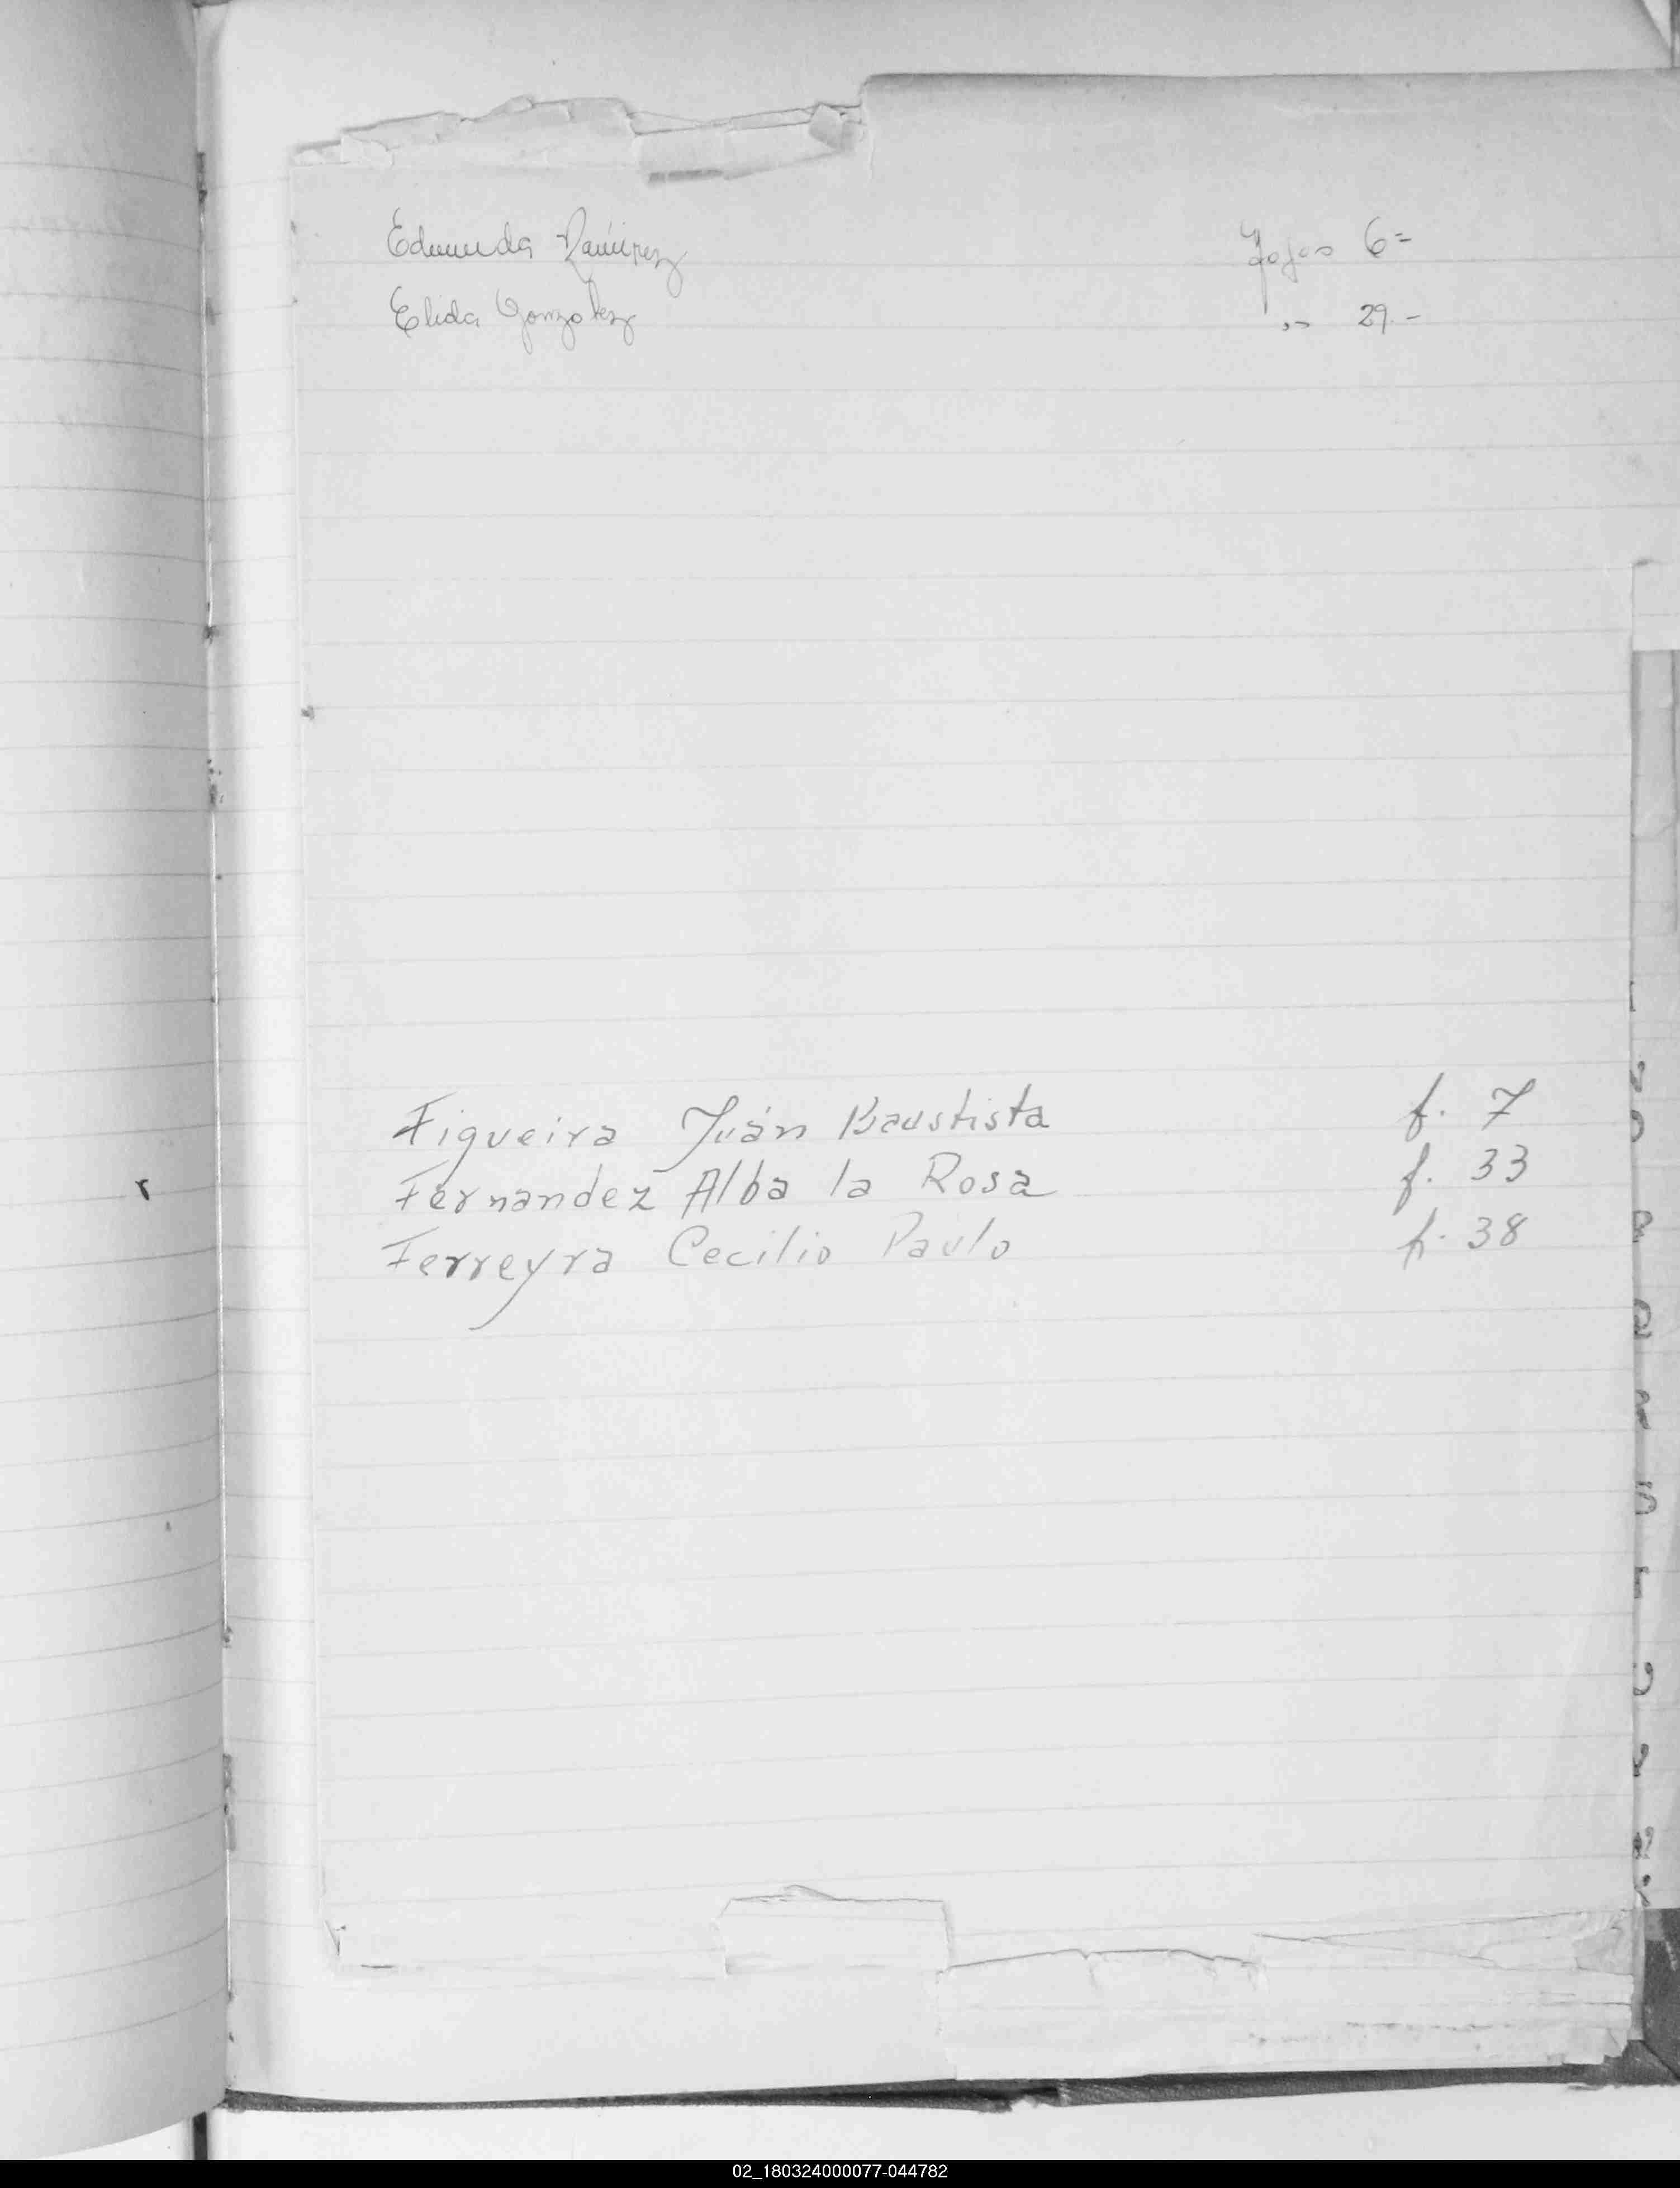 Edmunda Ramirez Fojas 6=
Elida Gonzalez ,, 29.-
Figueira Juán Baustista f. 7
Fernandez Alba la Rosa f. 33
Ferreyra Cecilio Paulo f. 38
02_180324000077-044782